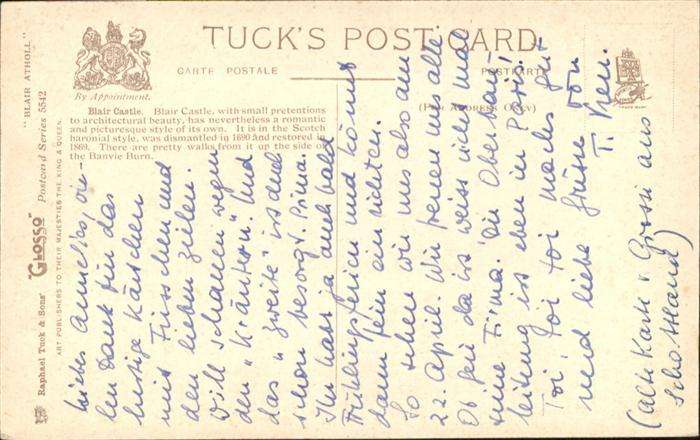 TUCK'S POST CARD
CARTE POSTALE
POSTKARTE
(FOR ADDRESS ONLY)
By Appointment.
Blair Castle. Blair Castle, with small pretentions
to architectural beauty, has nevertheless a romantic
and picturesque style of its own. It is in the Scotch
baronial style, was dismantled in 1690 and restored in
1869. There are pretty walks from it up the side of
the Banvie Burn.
"BLAIR ATHOLL"
Raphael Tuck & Sons' "GLOSSO" Postcard Series 5542
ART PUBLISHERS TO THEIR MAJESTIES THE KING & QUEEN.
TRADE MARK
Liebes Annelies, vie-
len Dank für das
lustige Kärtchen
mit Füsschen und
den lieben Zeilen.
Will schauen wegen
den "Kräutern". Und
das "Zweite" ist auch
schon besorgt. Prima.
Ihr habt ja auch bald
Frühlingsferien und könnt
dann fein ausrichten.
So sehen wir uns also am
22. April. Wir freuen uns alle.
Ob da ist weiss nicht mal
seine Firma! Die Oberbau-
leitung ist eben in Paris!
Toi, toi toi machs gu-
und liebe Grüsse von
(alte Karte v. Grossi aus
Schottland)